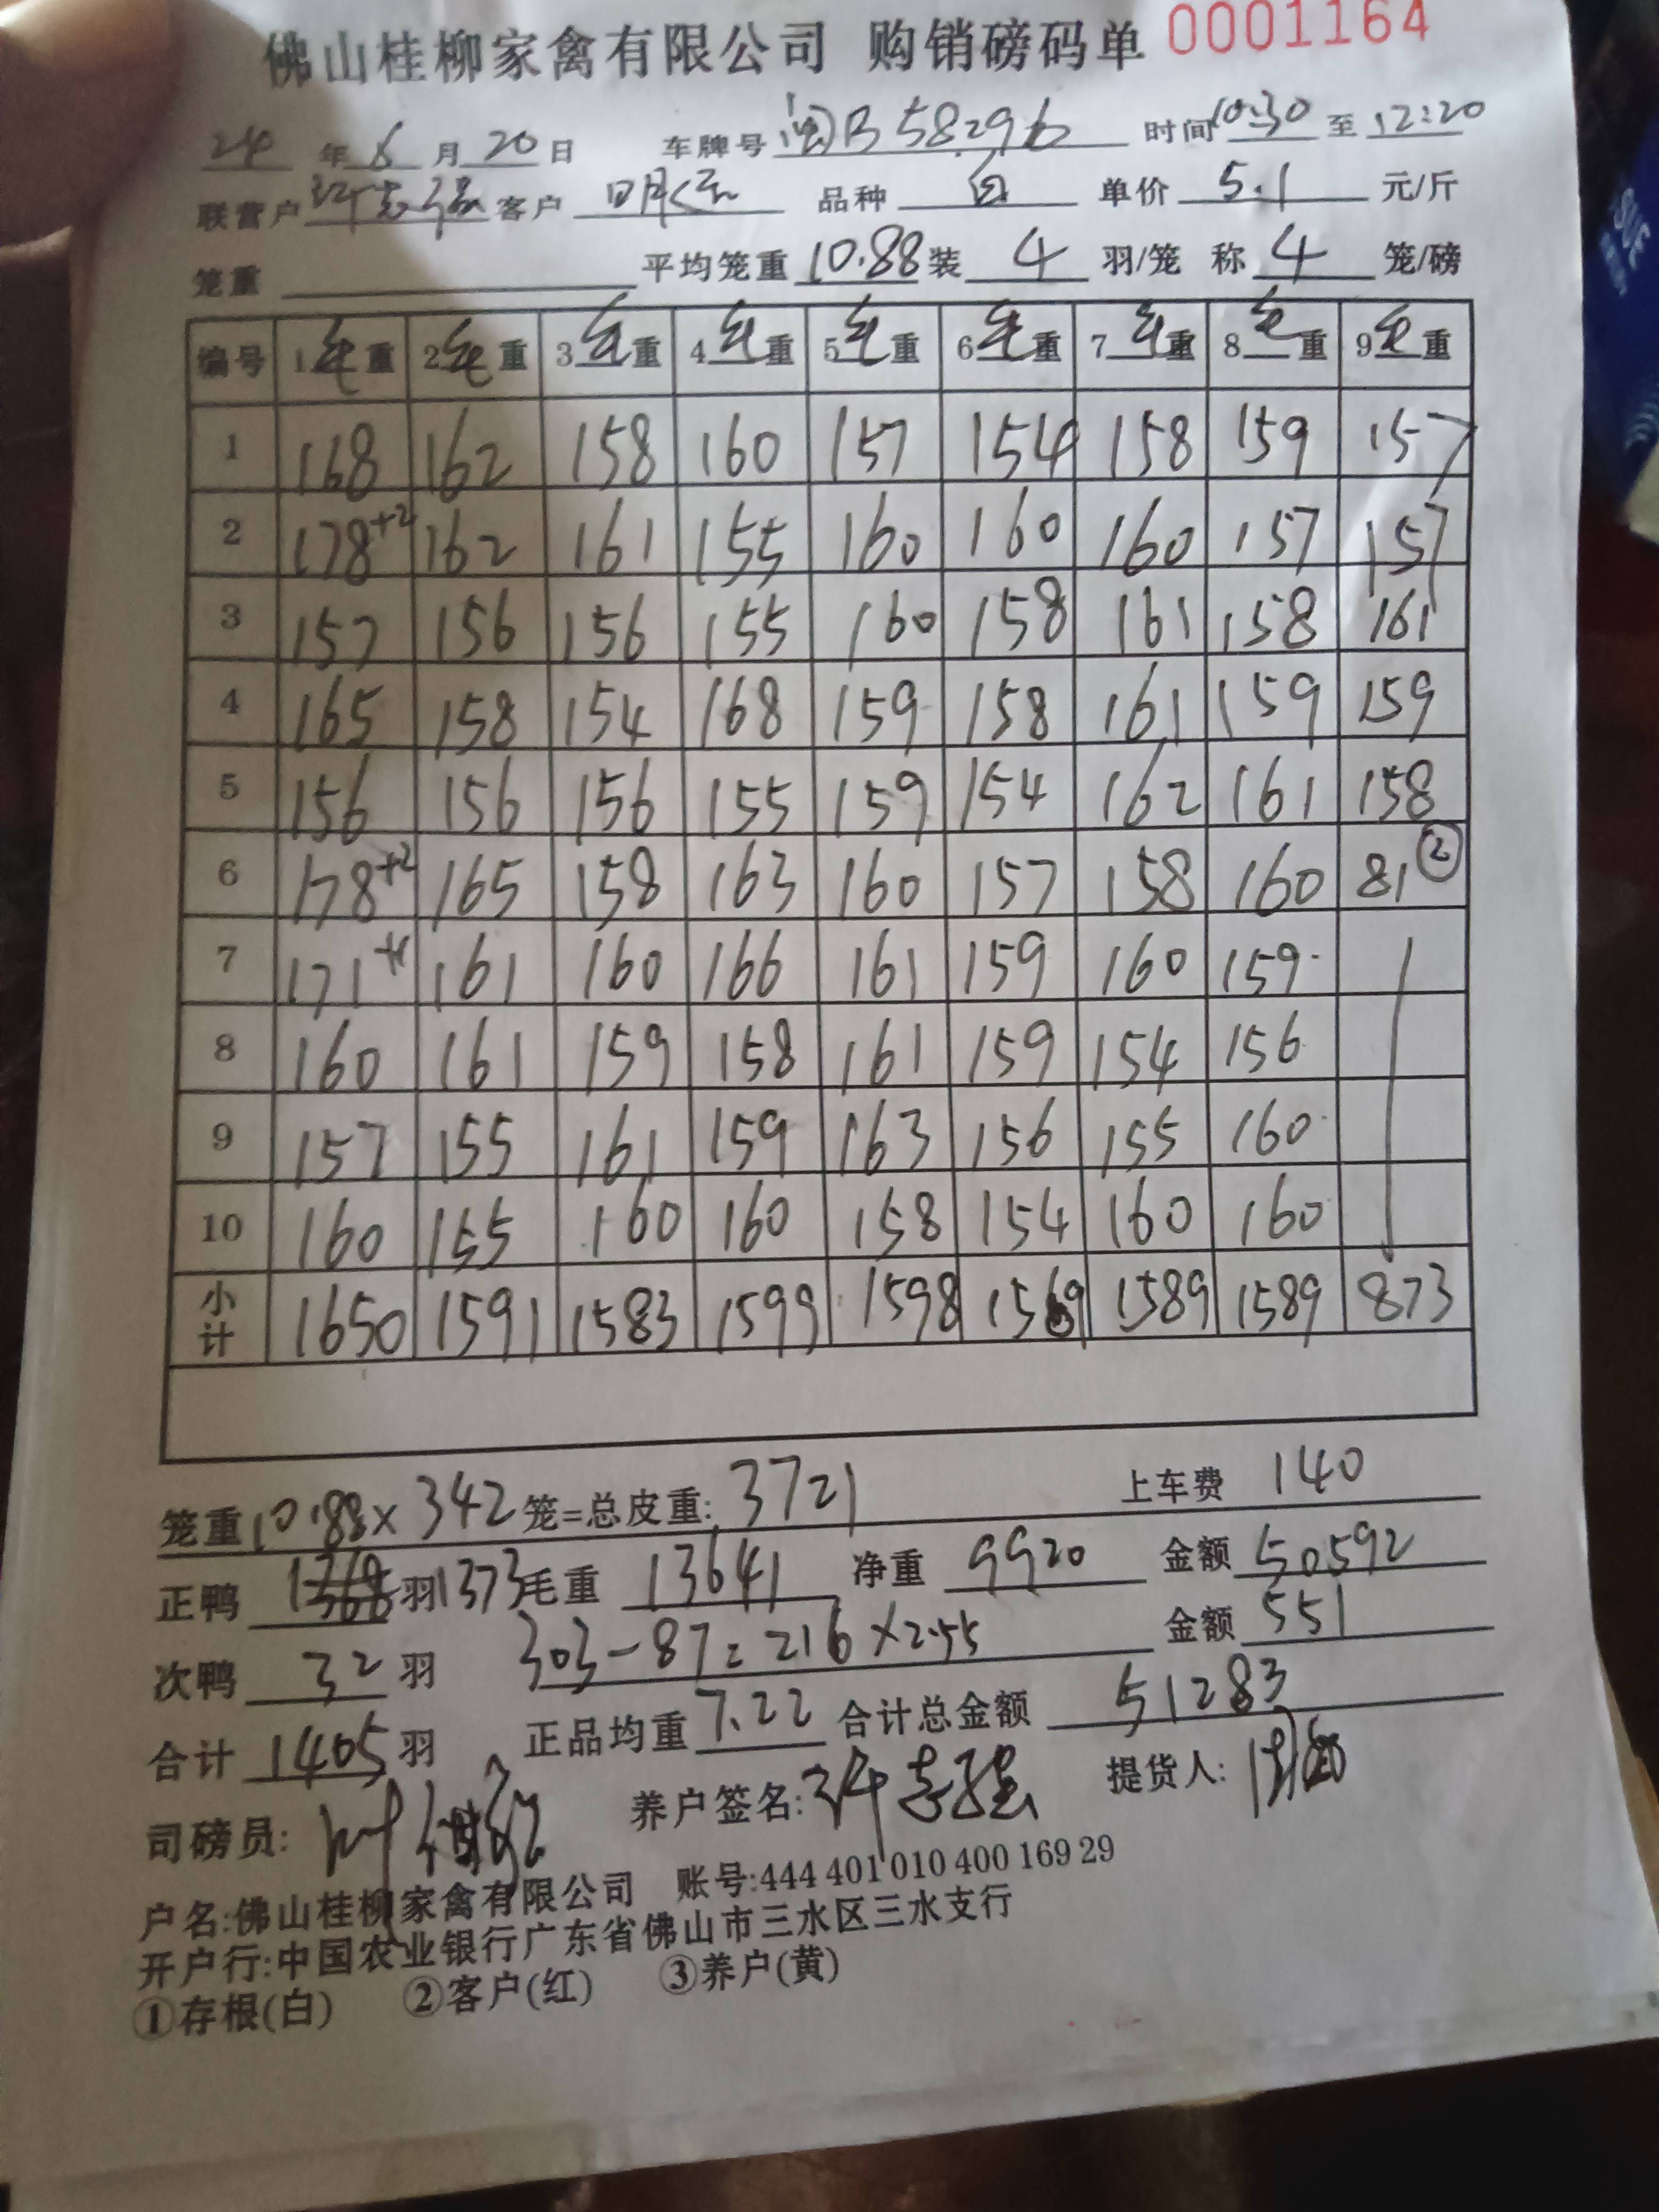 佛山桂柳家禽有限公司 购销磅码单 0001164
24 年 6 月 20 日 车牌号 闽B58296 时间 10:30 至 12:20
联营户 许志强 客户 明 品种 白 单价 5.1 元/斤
笼重 平均笼重 10.88 装 4 羽/笼 称 4 笼/磅
编号 1毛重 2毛重 3毛重 4毛重 5毛重 6毛重 7毛重 8毛重 9毛重
1 168 162 158 160 157 154 158 159 157
2 178+2 162 161 155 160 160 160 157 157
3 157 156 156 155 160 158 161 158 161
4 165 158 154 168 159 158 161 159 159
5 156 156 156 155 159 154 162 161 158
6 178+2 165 158 163 160 157 158 160 81②
7 171+1 161 160 166 161 159 160 159
8 160 161 159 158 161 159 154 156
9 157 155 161 159 163 156 155 160
10 160 155 160 160 158 154 160 160
小计 1650 1591 1583 1599 1598 1569 1589 1589 873
笼重 10.88 × 342 笼=总皮重: 3721 上车费 140
正鸭 1368 羽 1373 毛重 13641 净重 9920 金额 50592
次鸭 32 羽 303-87=216×2.55 金额 551
合计 1405 羽 正品均重 7.22 合计总金额 51283
司磅员: 养户签名: 许志强 提货人:
户名:佛山桂柳家禽有限公司 账号:444 401 010 400 169 29
开户行:中国农业银行广东省佛山市三水区三水支行
①存根(白) ②客户(红) ③养户(黄)